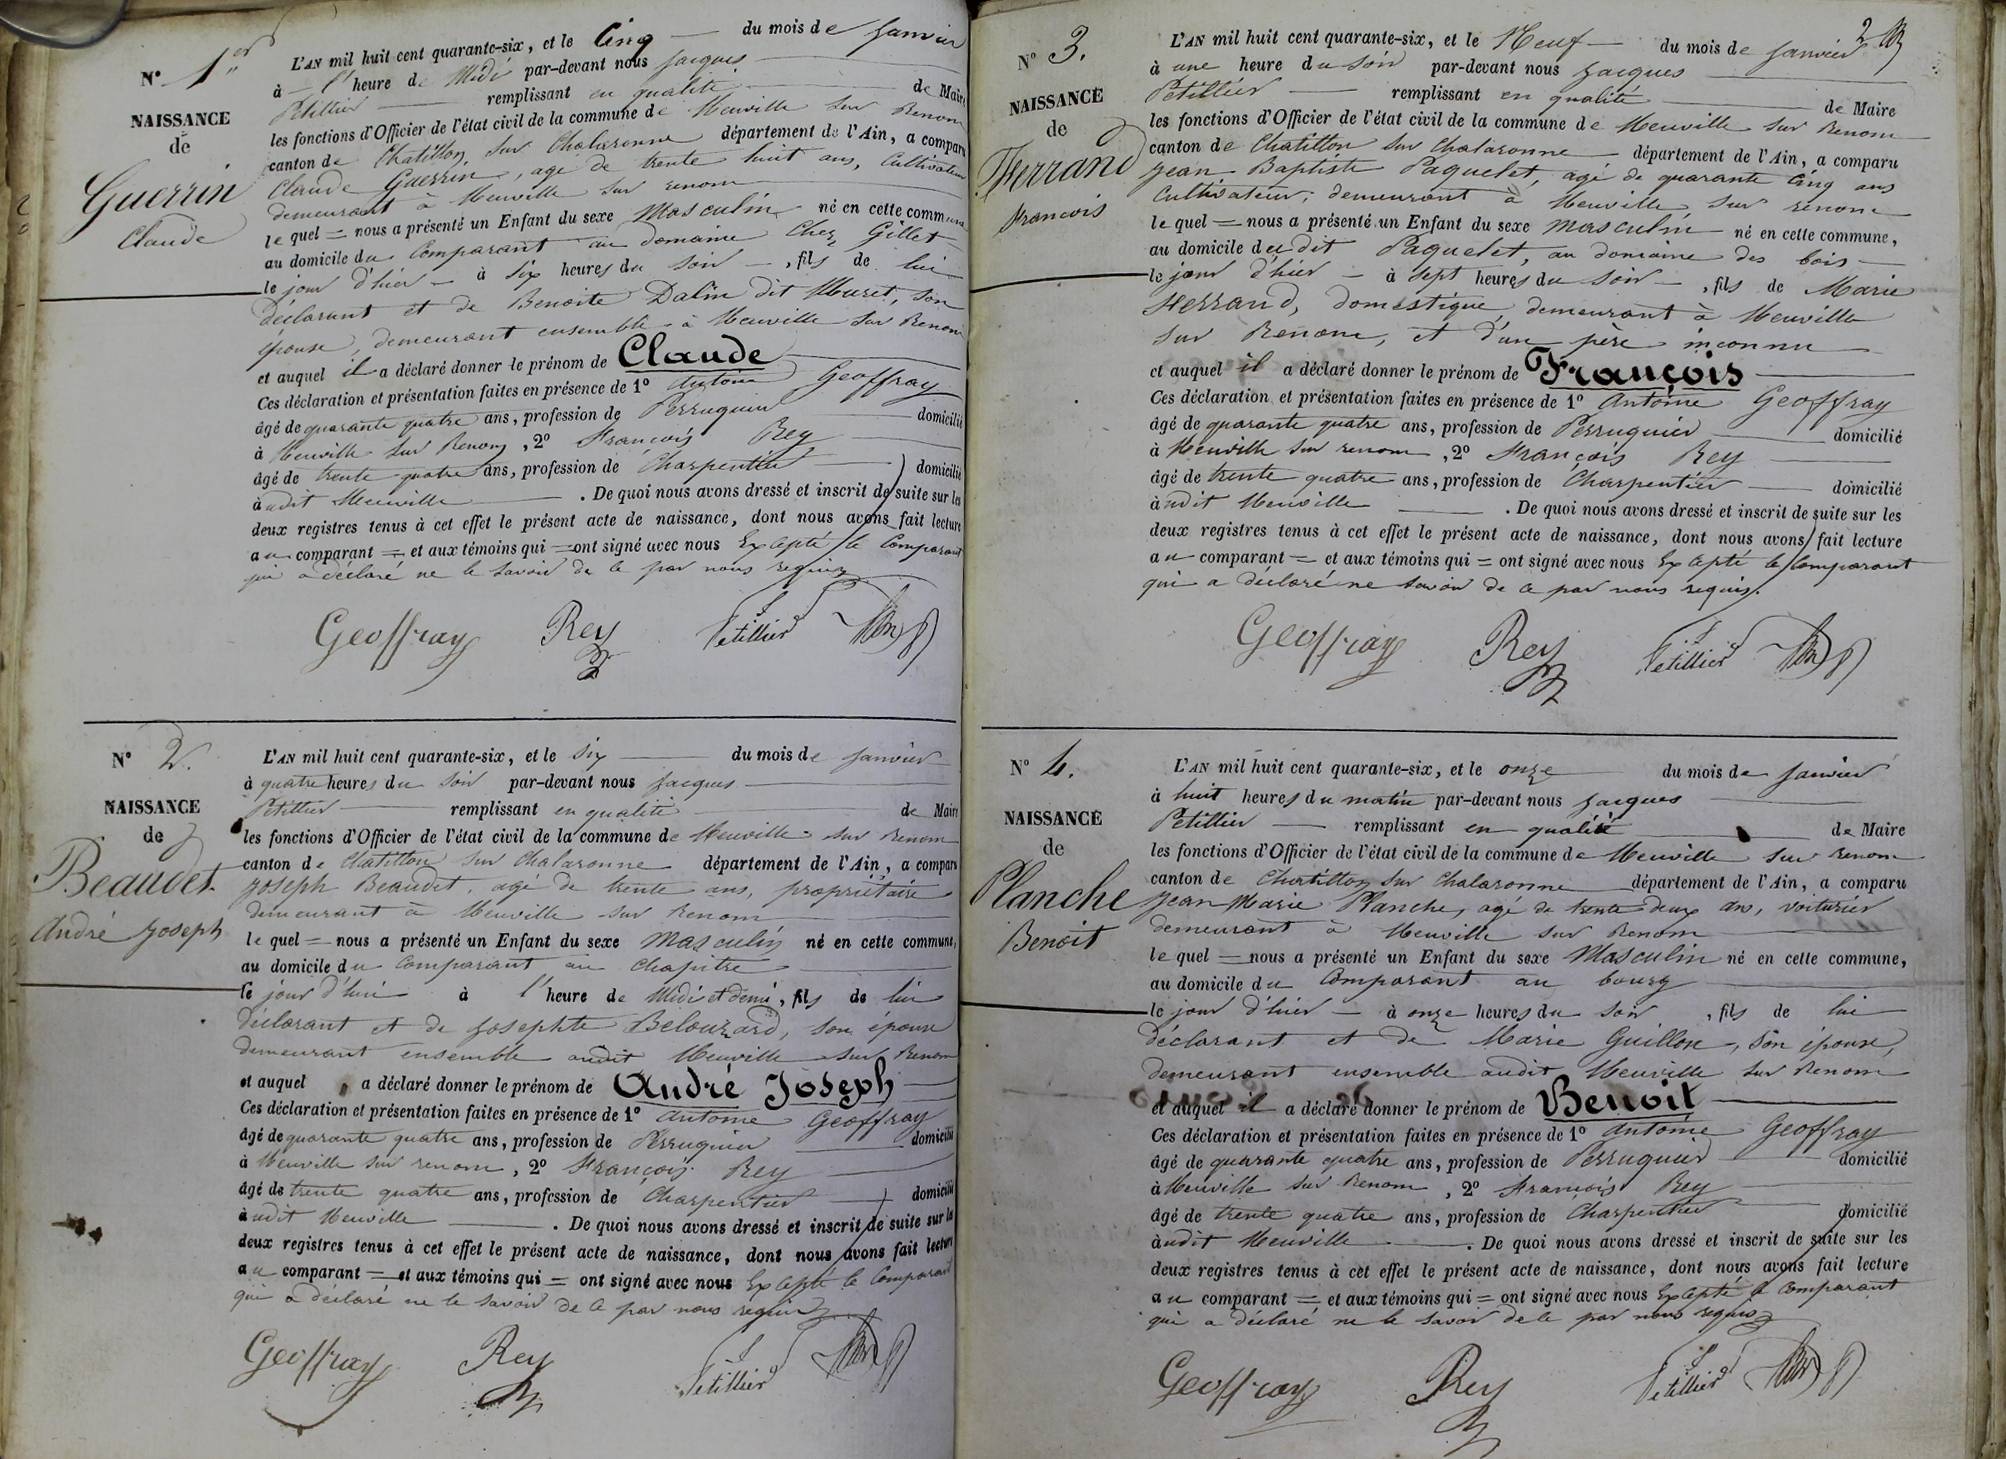 N° 1er
NAISSANCE
de
Guerrin
Claude
L'AN mil huit cent quarante-six, et le Cinq du mois de Janvier
à l'heure de Midi par-devant nous Jacques
Petillier remplissant en qualité de Maire
les fonctions d'Officier de l'état civil de la commune de Neuville sur Renom
canton de Chatillon sur Chalaronne département de l'Ain, a comparu
Claude Guerrin, agé de trente huit ans, Cultivateur
demeurant à Neuville sur renom
lequel = nous a présenté un Enfant du sexe Masculin né en cette commune
au domicile du Comparant au domaine Chez Gillet
le jour d'hier à six heures du soir, fils de lui
déclarant et de Benoite Dalin dit Muret, son
épouse, demeurant ensemble à Neuville sur Renom
et auquel il a déclaré donner le prénom de Claude
Ces déclaration et présentation faites en présence de 1° Antoine Geoffray
âgé de quarante quatre ans, profession de Perruquier domicilié
à Neuville sur Renom, 2° François Rey
âgé de trente quatre ans, profession de Charpentier domicilié
audit Neuville. De quoi nous avons dressé et inscrit de suite sur les
deux registres tenus à cet effet le présent acte de naissance, dont nous avons fait lecture
au comparant = et aux témoins qui = ont signé avec nous Excepté le Comparant
qui a déclaré ne le savoir de ce par nous requis
Geoffray Rey Petillier
N° 2.
NAISSANCE
de
Beaudet
André Joseph
L'AN mil huit cent quarante-six, et le six du mois de Janvier
à quatre heures du soir par-devant nous Jacques
Petillier remplissant en qualité de Maire
les fonctions d'Officier de l'état civil de la commune de Neuville sur Renom
canton de Chatillon sur Chalaronne département de l'Ain, a comparu
Joseph Beaudet, agé de trente ans, propriétaire
demeurant à Neuville sur Renom
lequel = nous a présenté un Enfant du sexe Masculin né en cette commune,
au domicile du Comparant au Chapitre
le jour d'hui à l'heure de Midi et demi, fils de lui
déclarant et de Josephte Belouzard, son épouse
demeurant ensemble audit Neuville sur Renom
et auquel a déclaré donner le prénom de André Joseph
Ces déclaration et présentation faites en présence de 1° Antoine Geoffray
âgé de quarante quatre ans, profession de Perruquier domicilié
à Neuville sur renom, 2° François Rey
âgé de trente quatre ans, profession de Charpentier domicilié
audit Neuville. De quoi nous avons dressé et inscrit de suite sur les
deux registres tenus à cet effet le présent acte de naissance, dont nous avons fait lecture
au comparant = et aux témoins qui = ont signé avec nous Excepté le Comparant
qui a déclaré ne le savoir de ce par nous requis
Geoffray Rey Petillier
2
N° 3.
NAISSANCE
de
Ferrand
François
L'AN mil huit cent quarante-six, et le Neuf du mois de Janvier
à une heure du soir par-devant nous Jacques
Petillier remplissant en qualité de Maire
les fonctions d'Officier de l'état civil de la commune de Neuville sur Renom
canton de Chatillon sur Chalaronne département de l'Ain, a comparu
Jean Baptiste Paquelet, agé de quarante Cinq ans
Cultivateur, demeurant à Neuville sur renom
lequel = nous a présenté un Enfant du sexe Masculin né en cette commune,
au domicile dudit Paquelet, au domaine des bois
le jour d'hier à sept heures du soir, fils de Marie
Ferrand, domestique, demeurant à Neuville
sur Renom, et d'un père inconnu
et auquel il a déclaré donner le prénom de François
Ces déclaration et présentation faites en présence de 1° Antoine Geoffray
âgé de quarante quatre ans, profession de Perruquier domicilié
à Neuville sur renom, 2° François Rey
âgé de trente quatre ans, profession de Charpentier domicilié
audit Neuville. De quoi nous avons dressé et inscrit de suite sur les
deux registres tenus à cet effet le présent acte de naissance, dont nous avons fait lecture
au comparant = et aux témoins qui = ont signé avec nous Excepté le Comparant
qui a déclaré ne savoir de ce par nous requis.
Geoffray Rey Petillier
N° 4.
NAISSANCE
de
Planche
Benoit
L'AN mil huit cent quarante-six, et le onze du mois de Janvier
à huit heures du matin par-devant nous Jacques
Petillier remplissant en qualité de Maire
les fonctions d'Officier de l'état civil de la commune de Neuville sur renom
canton de Chatillon sur Chalaronne département de l'Ain, a comparu
Jean Marie Planche, agé de trente deux ans, voiturier
demeurant à Neuville sur Renom
lequel = nous a présenté un Enfant du sexe Masculin né en cette commune,
au domicile du Comparant au bourg
le jour d'hier à onze heures du soir, fils de lui
déclarant et de Marie Guillon, son épouse,
demeurant ensemble audit Neuville sur Renom
et auquel il a déclaré donner le prénom de Benoit
Ces déclaration et présentation faites en présence de 1° Antoine Geoffray
âgé de quarante quatre ans, profession de Perruquier domicilié
à Neuville sur Renom, 2° François Rey
âgé de trente quatre ans, profession de Charpentier domicilié
audit Neuville. De quoi nous avons dressé et inscrit de suite sur les
deux registres tenus à cet effet le présent acte de naissance, dont nous avons fait lecture
au comparant = et aux témoins qui = ont signé avec nous Excepté le Comparant
qui a déclaré ne le savoir de ce par nous requis
Geoffray Rey Petillier